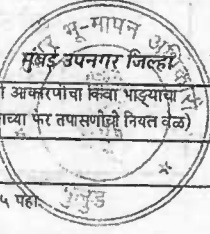 र भू-मापन अधिकारी
मुंबई उपनगर जिल्हा
आकारणीचा किंवा भाड्याचा
च्या फेर तपासणीची नियत वेळ)
५ पहा
मुलुंड